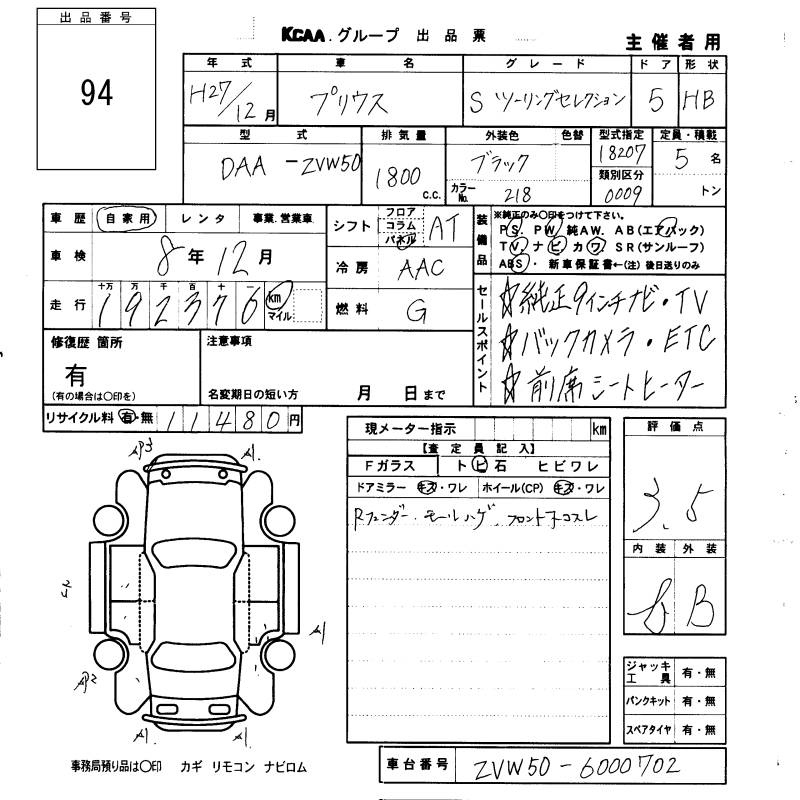 出品番号
94
KCAA.グループ 出品票
主催者用
年式 車名 グレード ドア 形状
H27/12月 プリウス S ツーリングセレクション 5 HB
型式 排気量 外装色 色替 型式指定 定員・積載
DAA-ZVW50 1800 c.c. ブラック 18207 5名
カラーNo. 218 類別区分 0009 トン
車歴 自家用 レンタ 事業.営業車
シフト フロア コラム パネル AT
装備品 ※純正のみ〇印をつけて下さい。
PS. PW. 純AW. AB(エアバック)
TV. ナビ カワ SR(サンルーフ)
ABS・新車保証書←(注)後日送りのみ
車検 8年12月
冷房 AAC
走行 十万 万 千 百 十
192376 km マイル
燃料 G
セールスポイント
☆純正9インチナビ・TV
☆バックカメラ・ETC
☆前席シートヒーター
修復歴 箇所
有
(有の場合は〇印を)
注意事項
名変期日の短い方 月 日まで
リサイクル料 有・無 11480円
現メーター指示 km
【査定員記入】
Fガラス トビ石 ヒビワレ
ドアミラー キズ・ワレ ホイール(CP) キズ・ワレ
Rフェンダー.モールハゲ.フロント下コスレ
評価点
3.5
内装 外装
B
ジャッキ工具 有・無
パンクキット 有・無
スペアタイヤ 有・無
AP3 A1
A1
AP2
A1 A1
事務局預り品は〇印 カギ リモコン ナビロム
車台番号 ZVW50-6000702